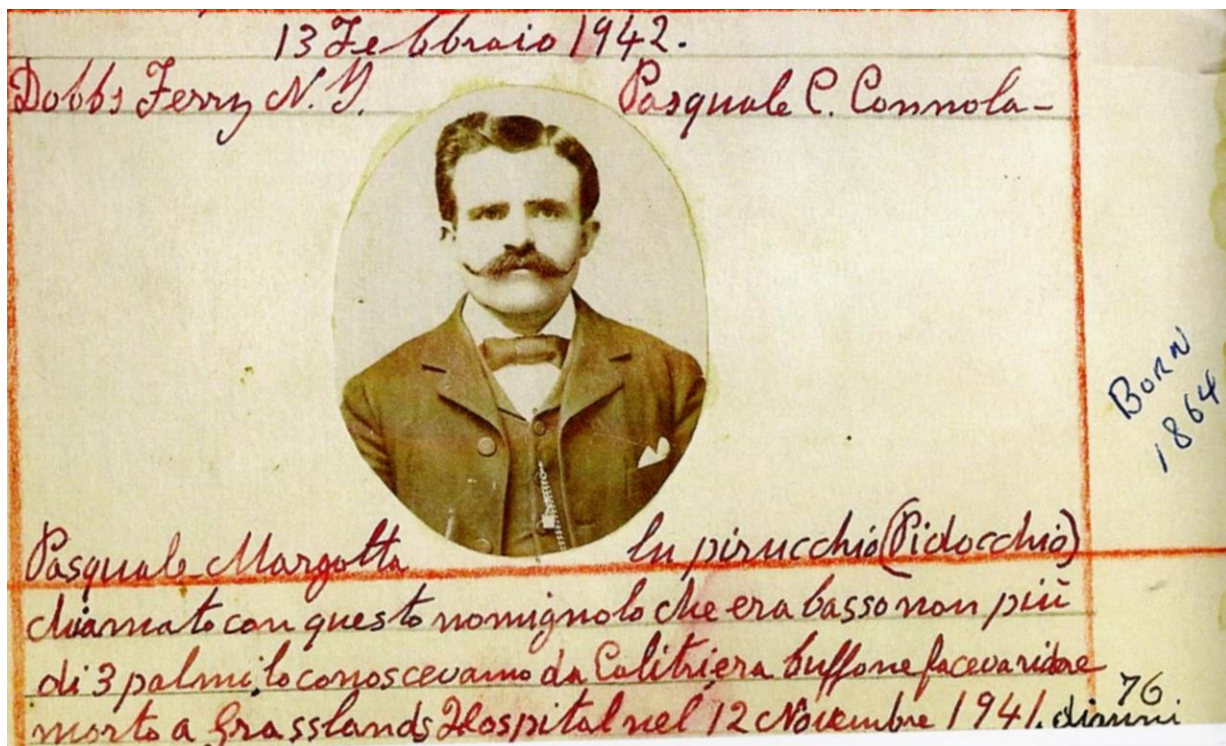 13 Febbraio 1942.
Dobbs Ferry N.Y. Pasquale C. Connola-
BORN
1864
Pasquale Margotta lu pirucchio (Pidocchio)
chiamato con questo nomignolo che era basso non più
di 3 palmi, lo conoscevamo da Calitri, era buffone faceva ridere
morto a Grasslands Hospital nel 12 Novembre 1941. di anni 76